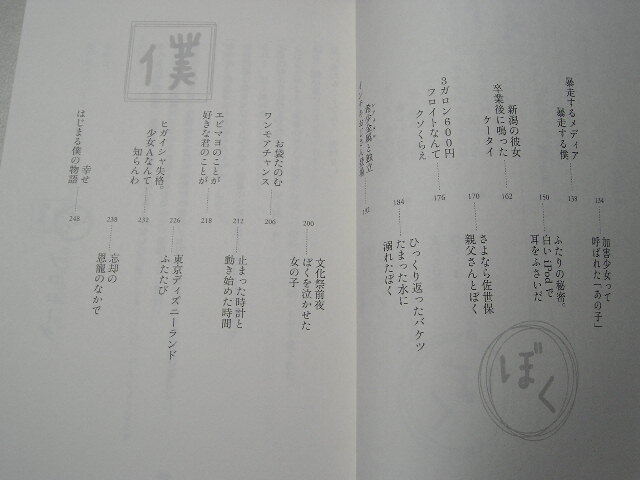 134
加害少女って
呼ばれた「あの子」
暴走するメディア
暴走する僕
138
150
ふたりの秘密。
白いiPodで
耳をふさいだ
新潟の彼女
卒業後に鳴った
ケータイ
162
170
さよなら佐世保
親父さんとぼく
3ガロン600円
フロイトなんて
クソくらえ
176
184
ひっくり返ったバケツ
たまった水に
溺れたぼく
192
ぼく
200
文化祭前夜
ぼくを泣かせた
女の子
お袋たのむ
ワンモアチャンス
206
212
止まった時計と
動き始めた時間
エビマヨのことが
好きな君のことが
218
226
東京ディズニーランド
ふたたび
ヒガイシャ失格。
少女Aなんて
知らんわ
232
238
忘却の
恩寵のなかで
幸せ
はじまる僕の物語
248
僕